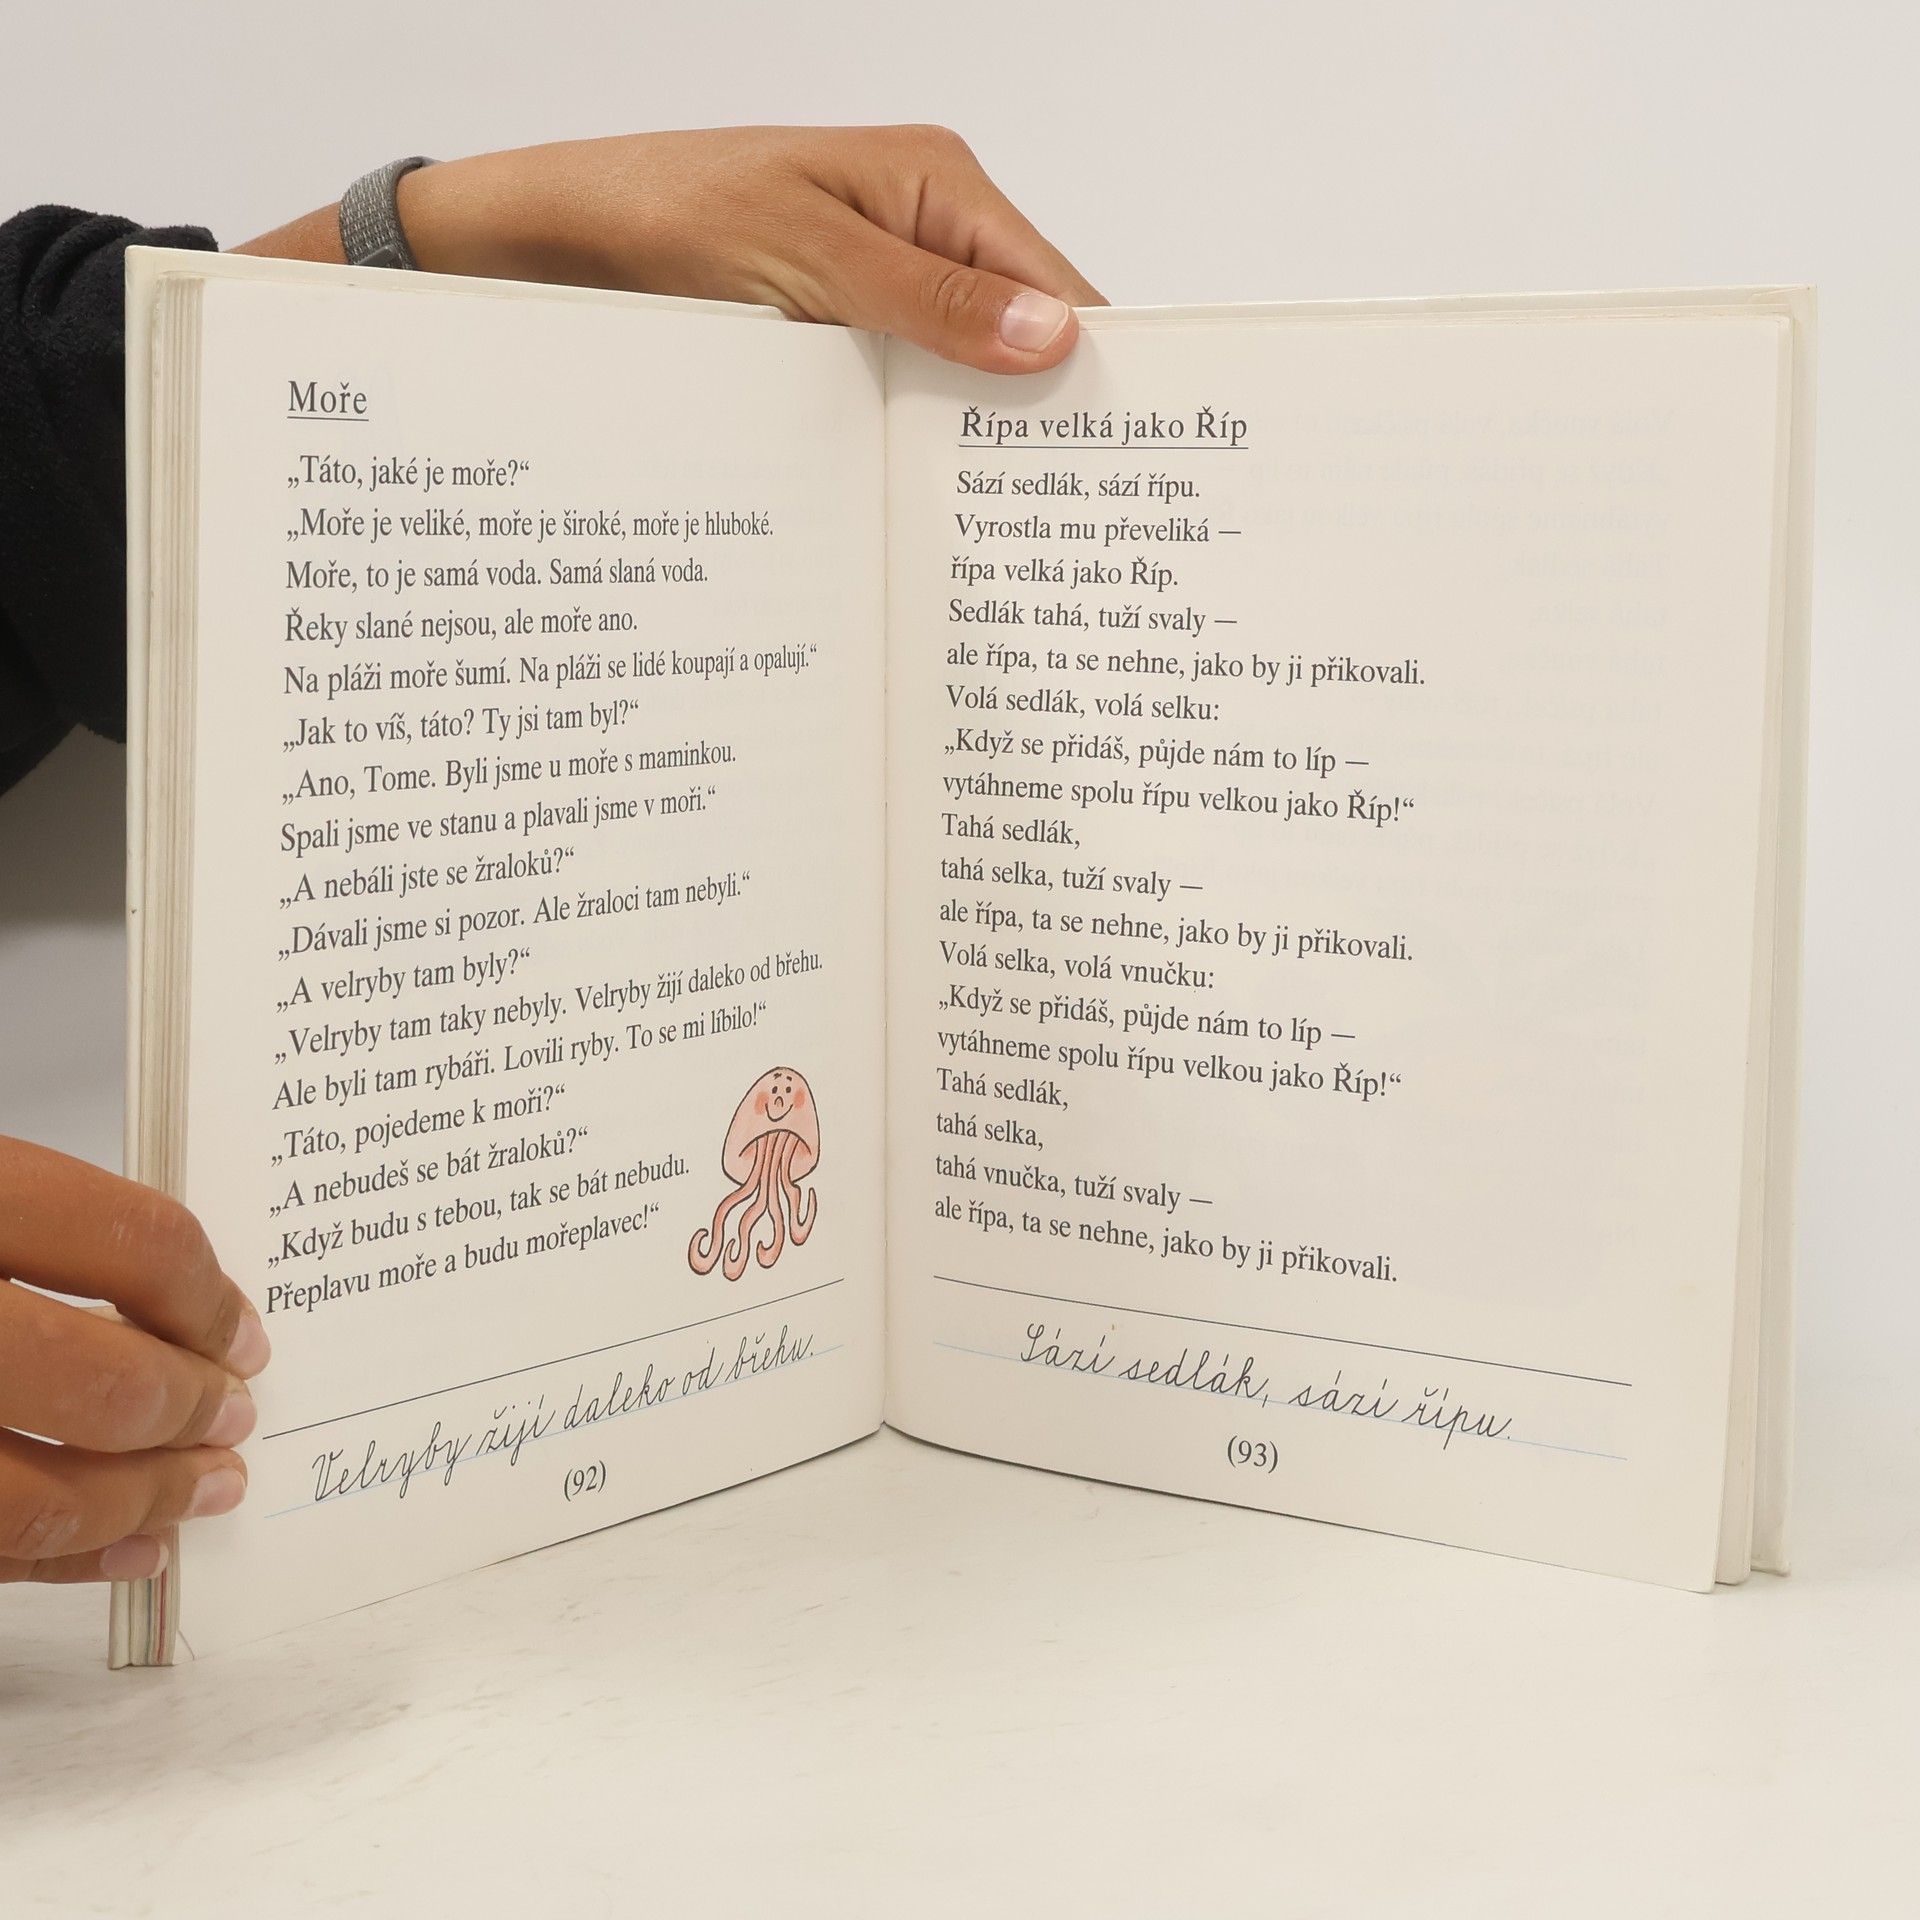 Moře
„Táto, jaké je moře?“
„Moře je veliké, moře je široké, moře je hluboké.
Moře, to je samá voda. Samá slaná voda.
Řeky slané nejsou, ale moře ano.
Na pláži moře šumí. Na pláži se lidé koupají a opalují.“
„Jak to víš, táto? Ty jsi tam byl?“
„Ano, Tome. Byli jsme u moře s maminkou.
Spali jsme ve stanu a plavali jsme v moři.“
„A nebáli jste se žraloků?“
„Dávali jsme si pozor. Ale žraloci tam nebyli.“
„A velryby tam byly?“
„Velryby tam taky nebyly. Velryby žijí daleko od břehu.
Ale byli tam rybáři. Lovili ryby. To se mi líbilo!“
„Táto, pojedeme k moři?“
„A nebudeš se bát žraloků?“
„Když budu s tebou, tak se bát nebudu.
Přeplavu moře a budu mořeplavec!“
Velryby žijí daleko od břehu.
(92)
Řípa velká jako Říp
Sází sedlák, sází řípu.
Vyrostla mu převeliká —
řípa velká jako Říp.
Sedlák tahá, tuží svaly —
ale řípa, ta se nehne, jako by ji přikovali.
Volá sedlák, volá selku:
„Když se přidáš, půjde nám to líp —
vytáhneme spolu řípu velkou jako Říp!“
Tahá sedlák,
tahá selka, tuží svaly —
ale řípa, ta se nehne, jako by ji přikovali.
Volá selka, volá vnučku:
„Když se přidáš, půjde nám to líp —
vytáhneme spolu řípu velkou jako Říp!“
Tahá sedlák,
tahá selka,
tahá vnučka, tuží svaly —
ale řípa, ta se nehne, jako by ji přikovali.
Sází sedlák, sází řípu.
(93)